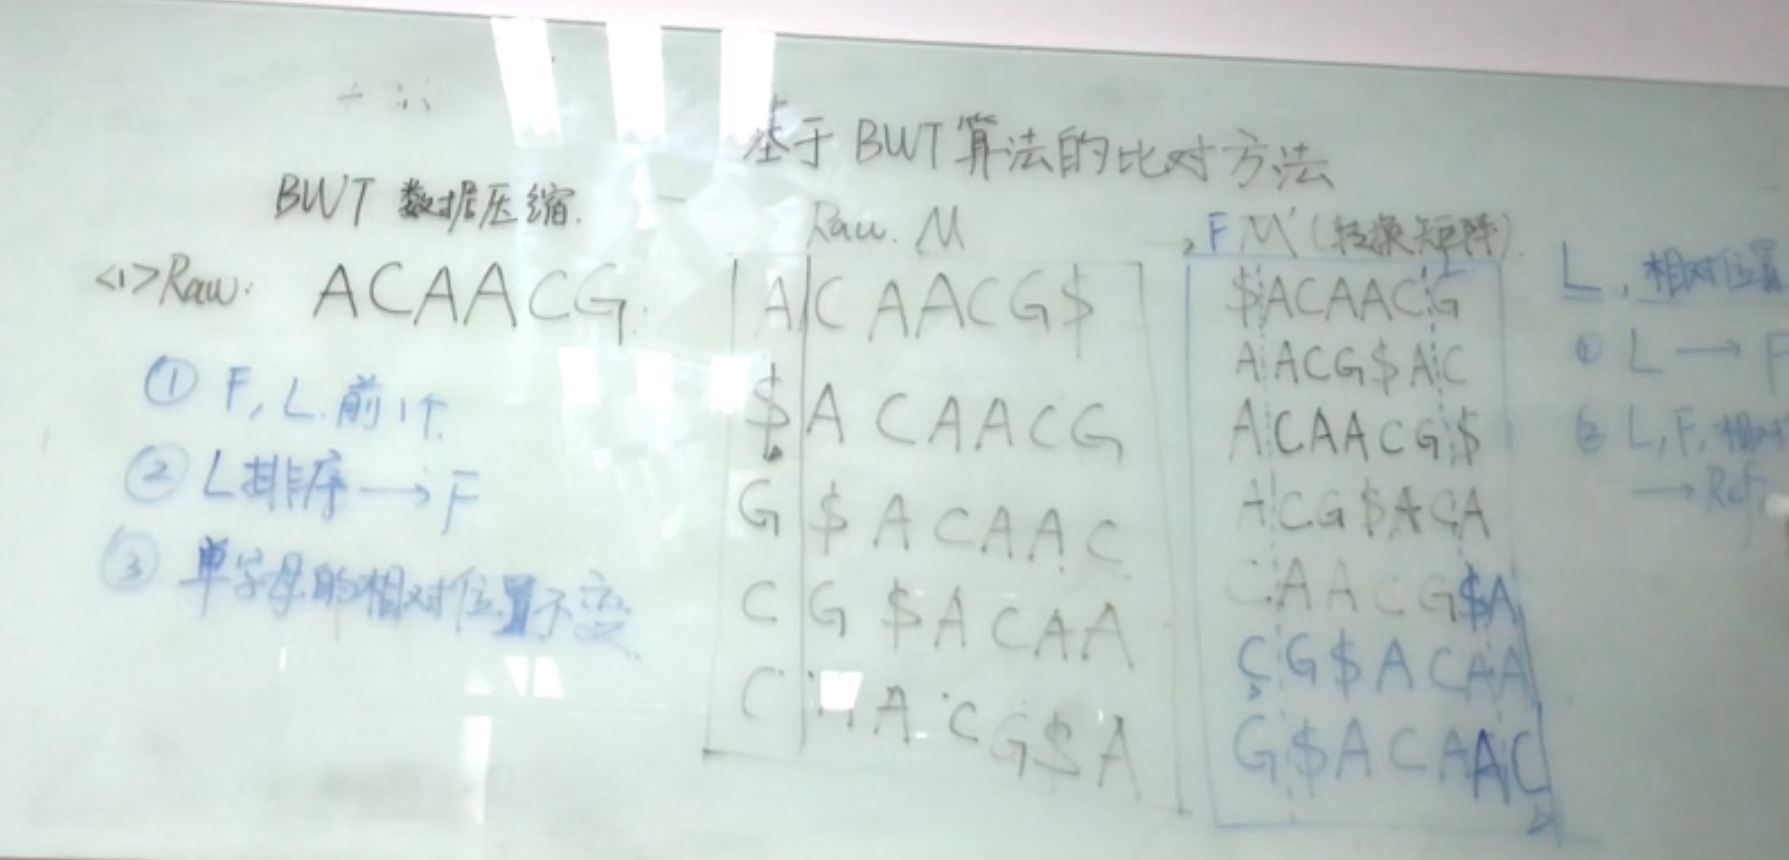 基于 BWT 算法的比对方法
BWT 数据压缩.
<1> Raw: ACAACG.
① F, L. 前1个
② L排序 → F
③ 单字母的相对位置不变.
Raw. M
A C A A C G $
$ A C A A C G
G $ A C A A C
C G $ A C A A
C A A C G $ A
F M' (转换矩阵). L
$ A C A A C G
A A C G $ A C
A C A A C G $
A C G $ A C A
C A A C G $ A
C G $ A C A A
G $ A C A A C
L, 相对位置
① L → F
② L, F, 相对
→ Ref